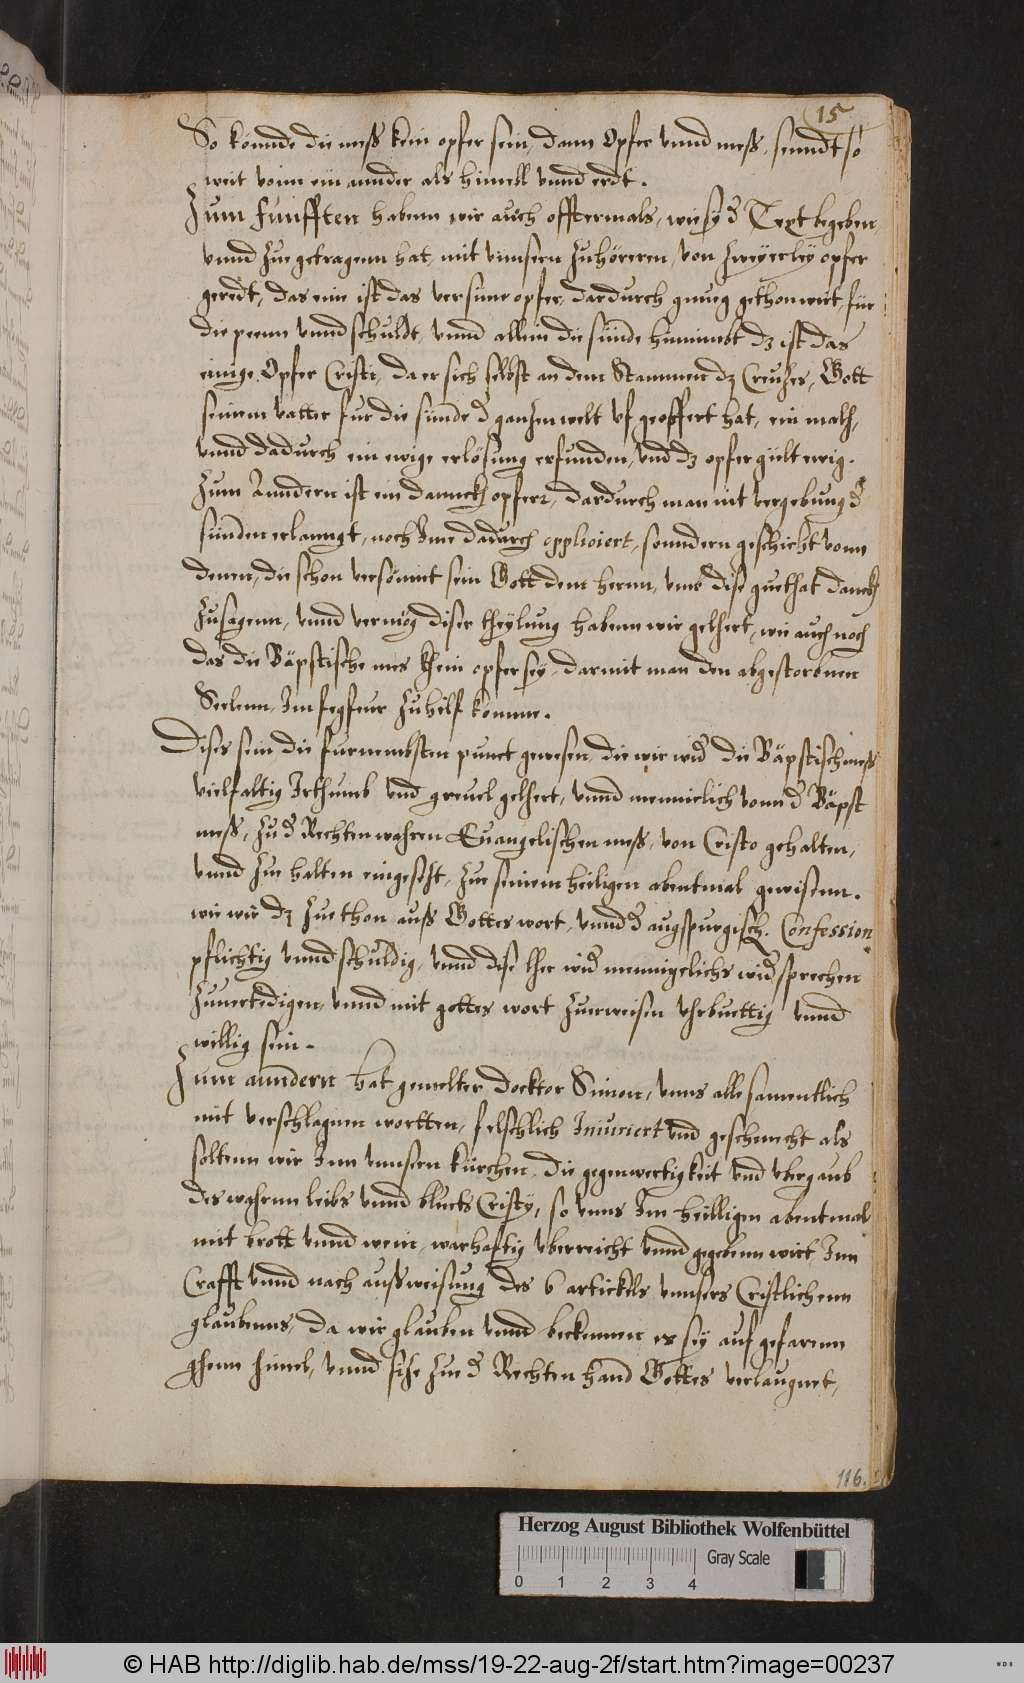 15
So könnde die mess kein opfer sein, dann Opfer vnnd mess, senndt so
weit vonn ein annder als himell vnnd erdt.
Zum funfften habenn wir auch offtermals, wie sy d Text begeben,
vnnd zue getragenn hat, mit vnnsern zuhöreren, von zweyerley opfer
geredt, das ein ist das versune opfer, dardurch gnueg gethon wirt, für
die peenn vnnd schuldt, vnnd allein die sünde hinnimbt dz ist das
einige Opfer Cristi, da er sich selbst an dem Stammen dz Creutzes, Gott
seinem vatter fur die sünde d gantzen welt vf geoffert hat, ein mall,
vnnd dadurch ein ewige erlösung erfunden, vnd dz opfer gült ewig.
Zum Anndern ist ein dannckh opferr, dardurch man nit vergebung d
sünden erlanngt, noch Ime dadurch appliciert, sonndern geschicht vonn
denen, die schon versönnt sein Gott dem herrn, vmb dise guethat danckh
zusagenn, vnnd vermög diser theylung habenn wir gelhert, wie auch noch
das die Bäpstische mes khein opfer sey, darmit man den abgestorbnen
Seelenn, Im fegfeur zu hilf komme.
Dises sein die furnembsten punct gewesen, die wir wid die Bäpstisch mess
vielfaltig Irthumb vnd greuel gelhert, vnnd mennicklich vonn d Bäpst
mess, zu d Rechten wahren Euangelischen mess, von Cristo gehalten,
vnnd zue halten eingesetzt, zue seinem heiligen abentmal gewisenn.
wie wir dz zue thon auss Gottes wort, vnnd d augspurgisch. Confession
pflichtig vnnd schuldig, vnnd dise lher wid mennigelichs widsprechen
zuuertedigen, vnnd mit gottes wort zuerweisen vhrbuettig vnnd
willig sein.
Zum anndern hat gemelter Docktor Simon, vnns alle samentlich
mit verschlagnen wortten, felschlich Iniuriert vnd geschmecht als
soltenn wir Inn vnnsern kürchen, die gegenwertigkeit vnd vbergaub
des wahrnn leibs vnnd bluets Cristy, so vnns Im heilligen abentmal
mit brott vnnd wein, warhaftig vberreicht vnnd gegebenn wirt, Inn
Crafft vnnd nach aussweisung des 6 artickels vnnsers Cristlichenn
glaubenns, da wir glauben vnnd bekennen er sey auf gefarenn
ghenn himel, vnnd sitze zue d Rechten hand Gottes verlaugnet,
116.
Herzog August Bibliothek Wolfenbüttel
Gray Scale
0 1 2 3 4
© HAB http://diglib.hab.de/mss/19-22-aug-2f/start.htm?image=00237